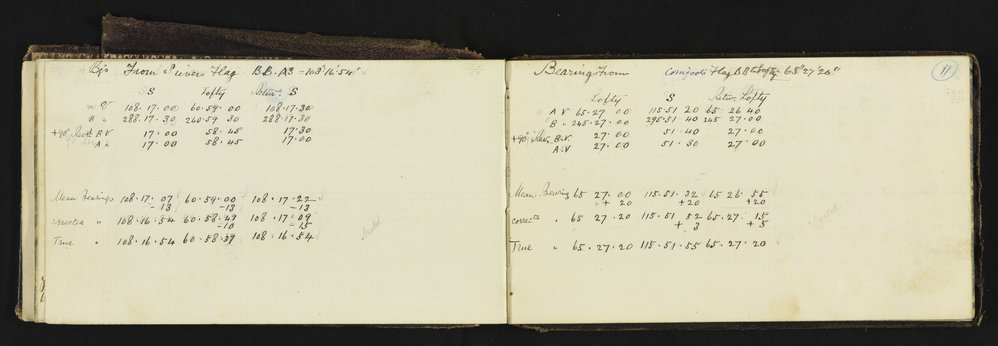 Bgs From Sievers Flag B.B. A3 = 108°16'54"
S Lofty Return S
A V 108.17.00 60.59.00 108.17.30
B " 288.17.30 240.59.30 288.17.30
+90° Rev. B.V 17.00 58.45 17.30
A " 17.00 58.45 17.00
Mean Bearings 108.17.07 60.59.00 108.17.22
-13 -13 -13
corrected " 108.16.54 60.58.47 108.17.09
-10 -15
True " 108.16.54 60.58.37 108.16.54
Bearing From Flag BB to Lofty 65°27'20"
11
Lofty S Return Lofty
A V 65.27.00 115.51.20 65.26.40
B " 245.27.00 295.51.40 245.27.00
+90° Rev. B.V 27.00 51.40 27.00
A.V 27.00 51.30 27.00
Mean Bearing 65.27.00 115.51.32 65.26.55
+20 +20 +20
correctd " 65.27.20 115.51.52 65.27.15
+3 +5
True " 65.27.20 115.51.55 65.27.20